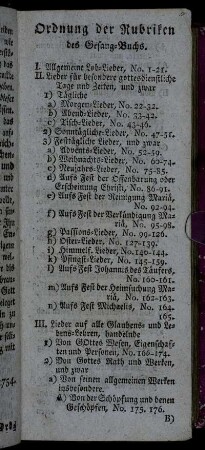 Ordnung der Rubriken
des Gesang-Buchs.
I. Allgemeine Lob-Lieder, No. 1-21.
II. Lieder für besondere gottesdienstliche
Tage und Zeiten, und zwar
1) Tägliche
a) Morgen-Lieder, No. 22-32.
b) Abend-Lieder, No. 33-42.
c) Tisch-Lieder, No. 43-46.
2) Sonntägliche-Lieder, No. 47-51.
3) Festtägliche Lieder, und zwar
a) Advents-Lieder, No. 52-59.
b) Weihnachts-Lieder, No. 60-74.
c) Neujahrs-Lieder, No. 75-85.
d) Aufs Fest der Offenbarung oder
Erscheinung Christi, No. 86-91.
e) Aufs Fest der Reinigung Mariä,
No. 92-94.
f) Aufs Fest der Verkündigung Ma-
riä, No. 95-98.
g) Passions-Lieder, No. 99-126.
h) Oster-Lieder, No. 127-139.
i) Himmelf. Lieder, No. 140-144.
k) Pfingst-Lieder, No. 145-159.
l) Aufs Fest Johannis des Täufers,
No. 160-161.
m) Aufs Fest der Heimsuchung Ma-
riä, No. 162-163.
n) Aufs Fest Michaelis, No. 164-
165.
III. Lieder auf alle Glaubens- und Le-
bens-Lehren, handelnde
1) Von GOttes Wesen, Eigenschaf-
ten und Personen, No. 166-174.
2) Von Gottes Rath und Werken,
und zwar
a) Von seinen allgemeinen Werken
insbesondere.
Von der Schöpfung und denen
Geschöpfen, No. 175, 176.
B)